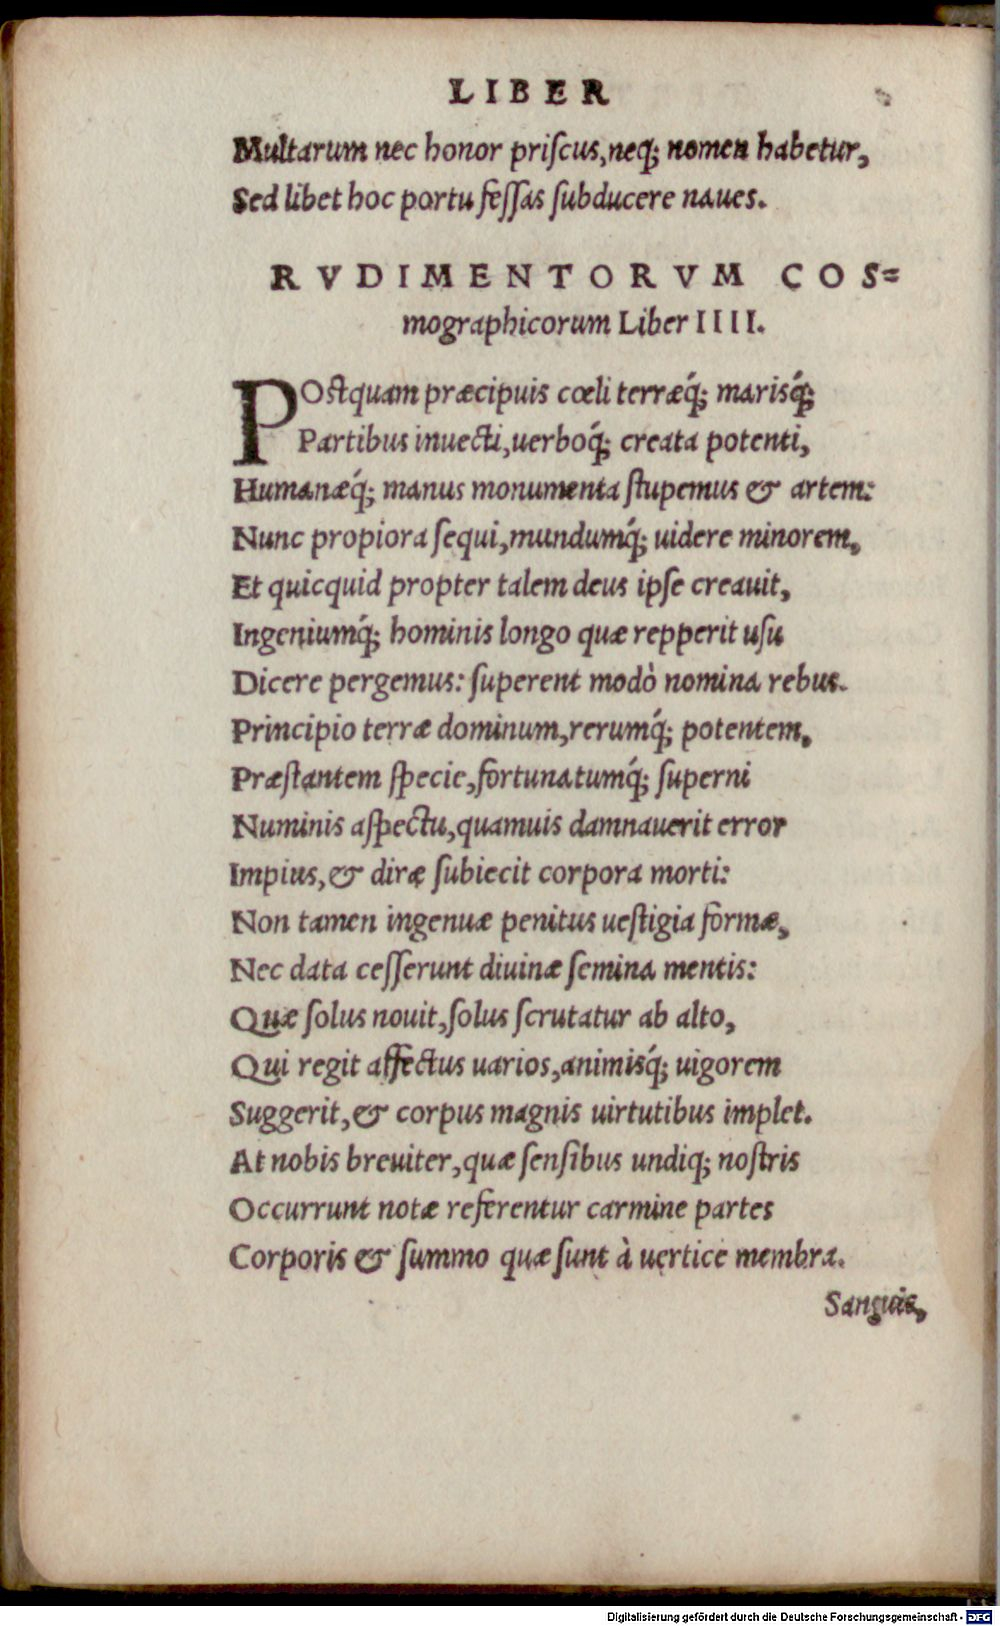 LIBER
Multarum nec honor priſcus, neq; nomen habetur,
Sed libet hoc portu feſſas ſubducere naues.
RVDIMENTORVM COS=
mographicorum Liber IIII.
POstquam præcipuis cœli terræq́; marisq́;
Partibus inuecti, uerboq́; creata potenti,
Humanæq́; manus monumenta ſtupemus & artem:
Nunc propiora ſequi, mundumq́; uidere minorem,
Et quicquid propter talem deus ipſe creauit,
Ingeniumq́; hominis longo quæ repperit uſu
Dicere pergemus: ſuperent modò nomina rebus.
Principio terræ dominum, rerumq́; potentem,
Præſtantem ſpecie, fortunatumq́; ſuperni
Numinis aſpectu, quamuis damnauerit error
Impius, & diræ ſubiecit corpora morti:
Non tamen ingenuæ penitus ueſtigia formæ,
Nec data ceſſerunt diuinæ ſemina mentis:
Quæ ſolus nouit, ſolus ſcrutatur ab alto,
Qui regit affectus uarios, animisq́; uigorem
Suggerit, & corpus magnis uirtutibus implet.
At nobis breuiter, quæ ſenſibus undiq; noſtris
Occurrunt notæ referentur carmine partes
Corporis & ſummo quæ ſunt à uertice membra.
Sanguis,
Digitalisierung gefördert durch die Deutsche Forschungsgemeinschaft - DFG